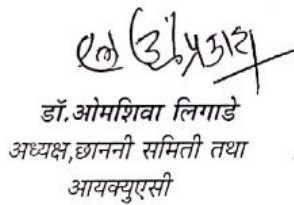 डॉ.ओमशिवा लिगाडे
अध्यक्ष,छाननी समिती तथा
आयक्युएसी